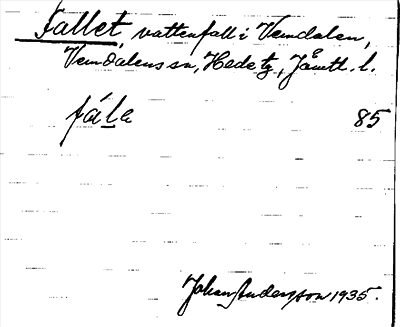 Fallet, vattenfall i Vemdalen,
Vemdalens sn, Hede tg, Jämtl. l.
fála 85
Johan Andersson 1935.